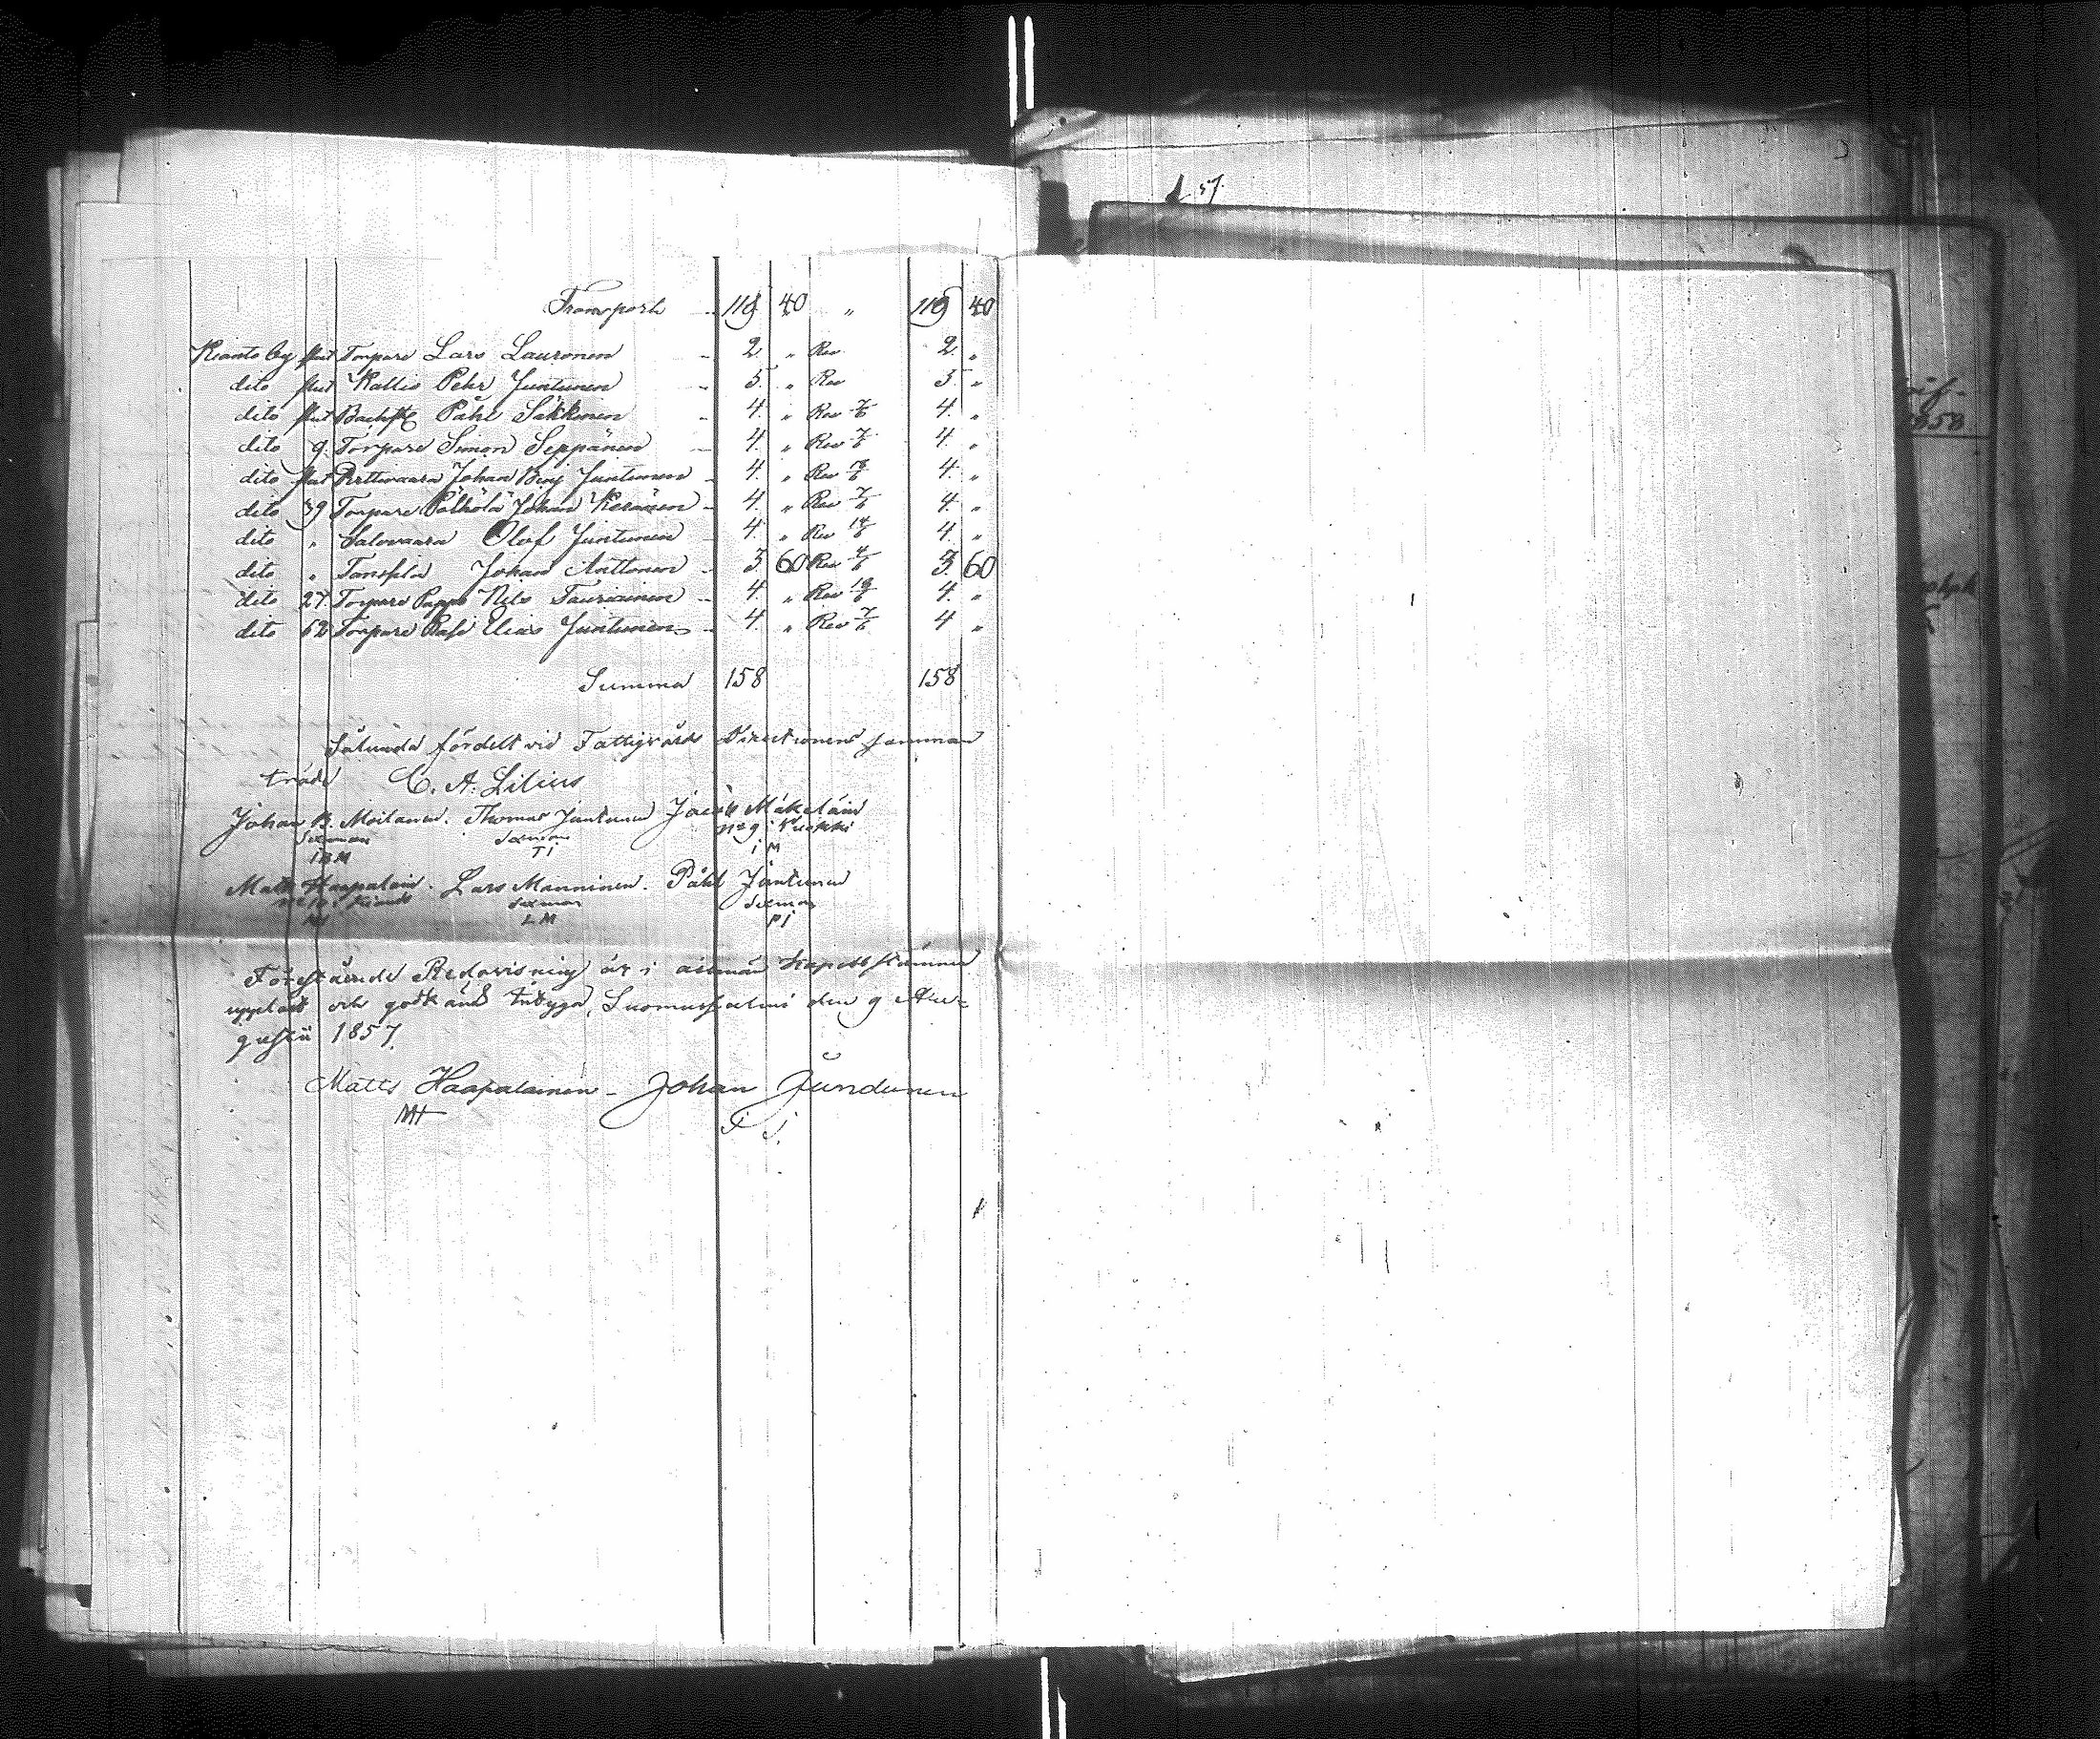 d. 57.
Transport 119 40 " 119 40
Kianto by flut Torpare Lars Lauronen 2 " Rev 2 "
dito flut Kallio Pehr Juntunen 5. " Rev 5 "
dito flut Påhl Säkkinen 4. " Rev 7/6 4. "
dito 9. Torpare Simon Seppänen 4. " Rev 7/6 4. "
dito flut Perttuvaara Johan Juntunen 4. " Rev 4. "
dito 39 Torpare Pölkölä Johan Keränen 4. " Rev 7/6 4. "
dito " Salovaara Olof Juntunen 4. " Rev 14/6 4. "
dito " Johan Anttonen 3. 60 Rev 3. 60
dito 27. Torpare Pappo Nils Tauriainen 4. " Rev 4. "
dito 62 Torpare Elias Juntunen 4. " Rev 7/6 4 "
Summa 158 158
Sålunda fördelt vid Fattigvårds Direktionens samman
träde C. A. Lilius
Johan B. Moilanen. Thomas Juntunen Jacob Mäkeläin
Sexman Sexman No 9 Ruokki
IBM TI iM
Matts Haapalain. Lars Manninen. Påhl Jüntunen
No 10 Kianto Sexman Sexman
MH LM PJ
Förestående Redovisning är i allmän Kapellstämma
uppläst och godkänd intyga, Suomusjalmi den 9 Au-
gustii 1857.
Matts Haapalainen - Johan Jundunen
MH J J.
1858